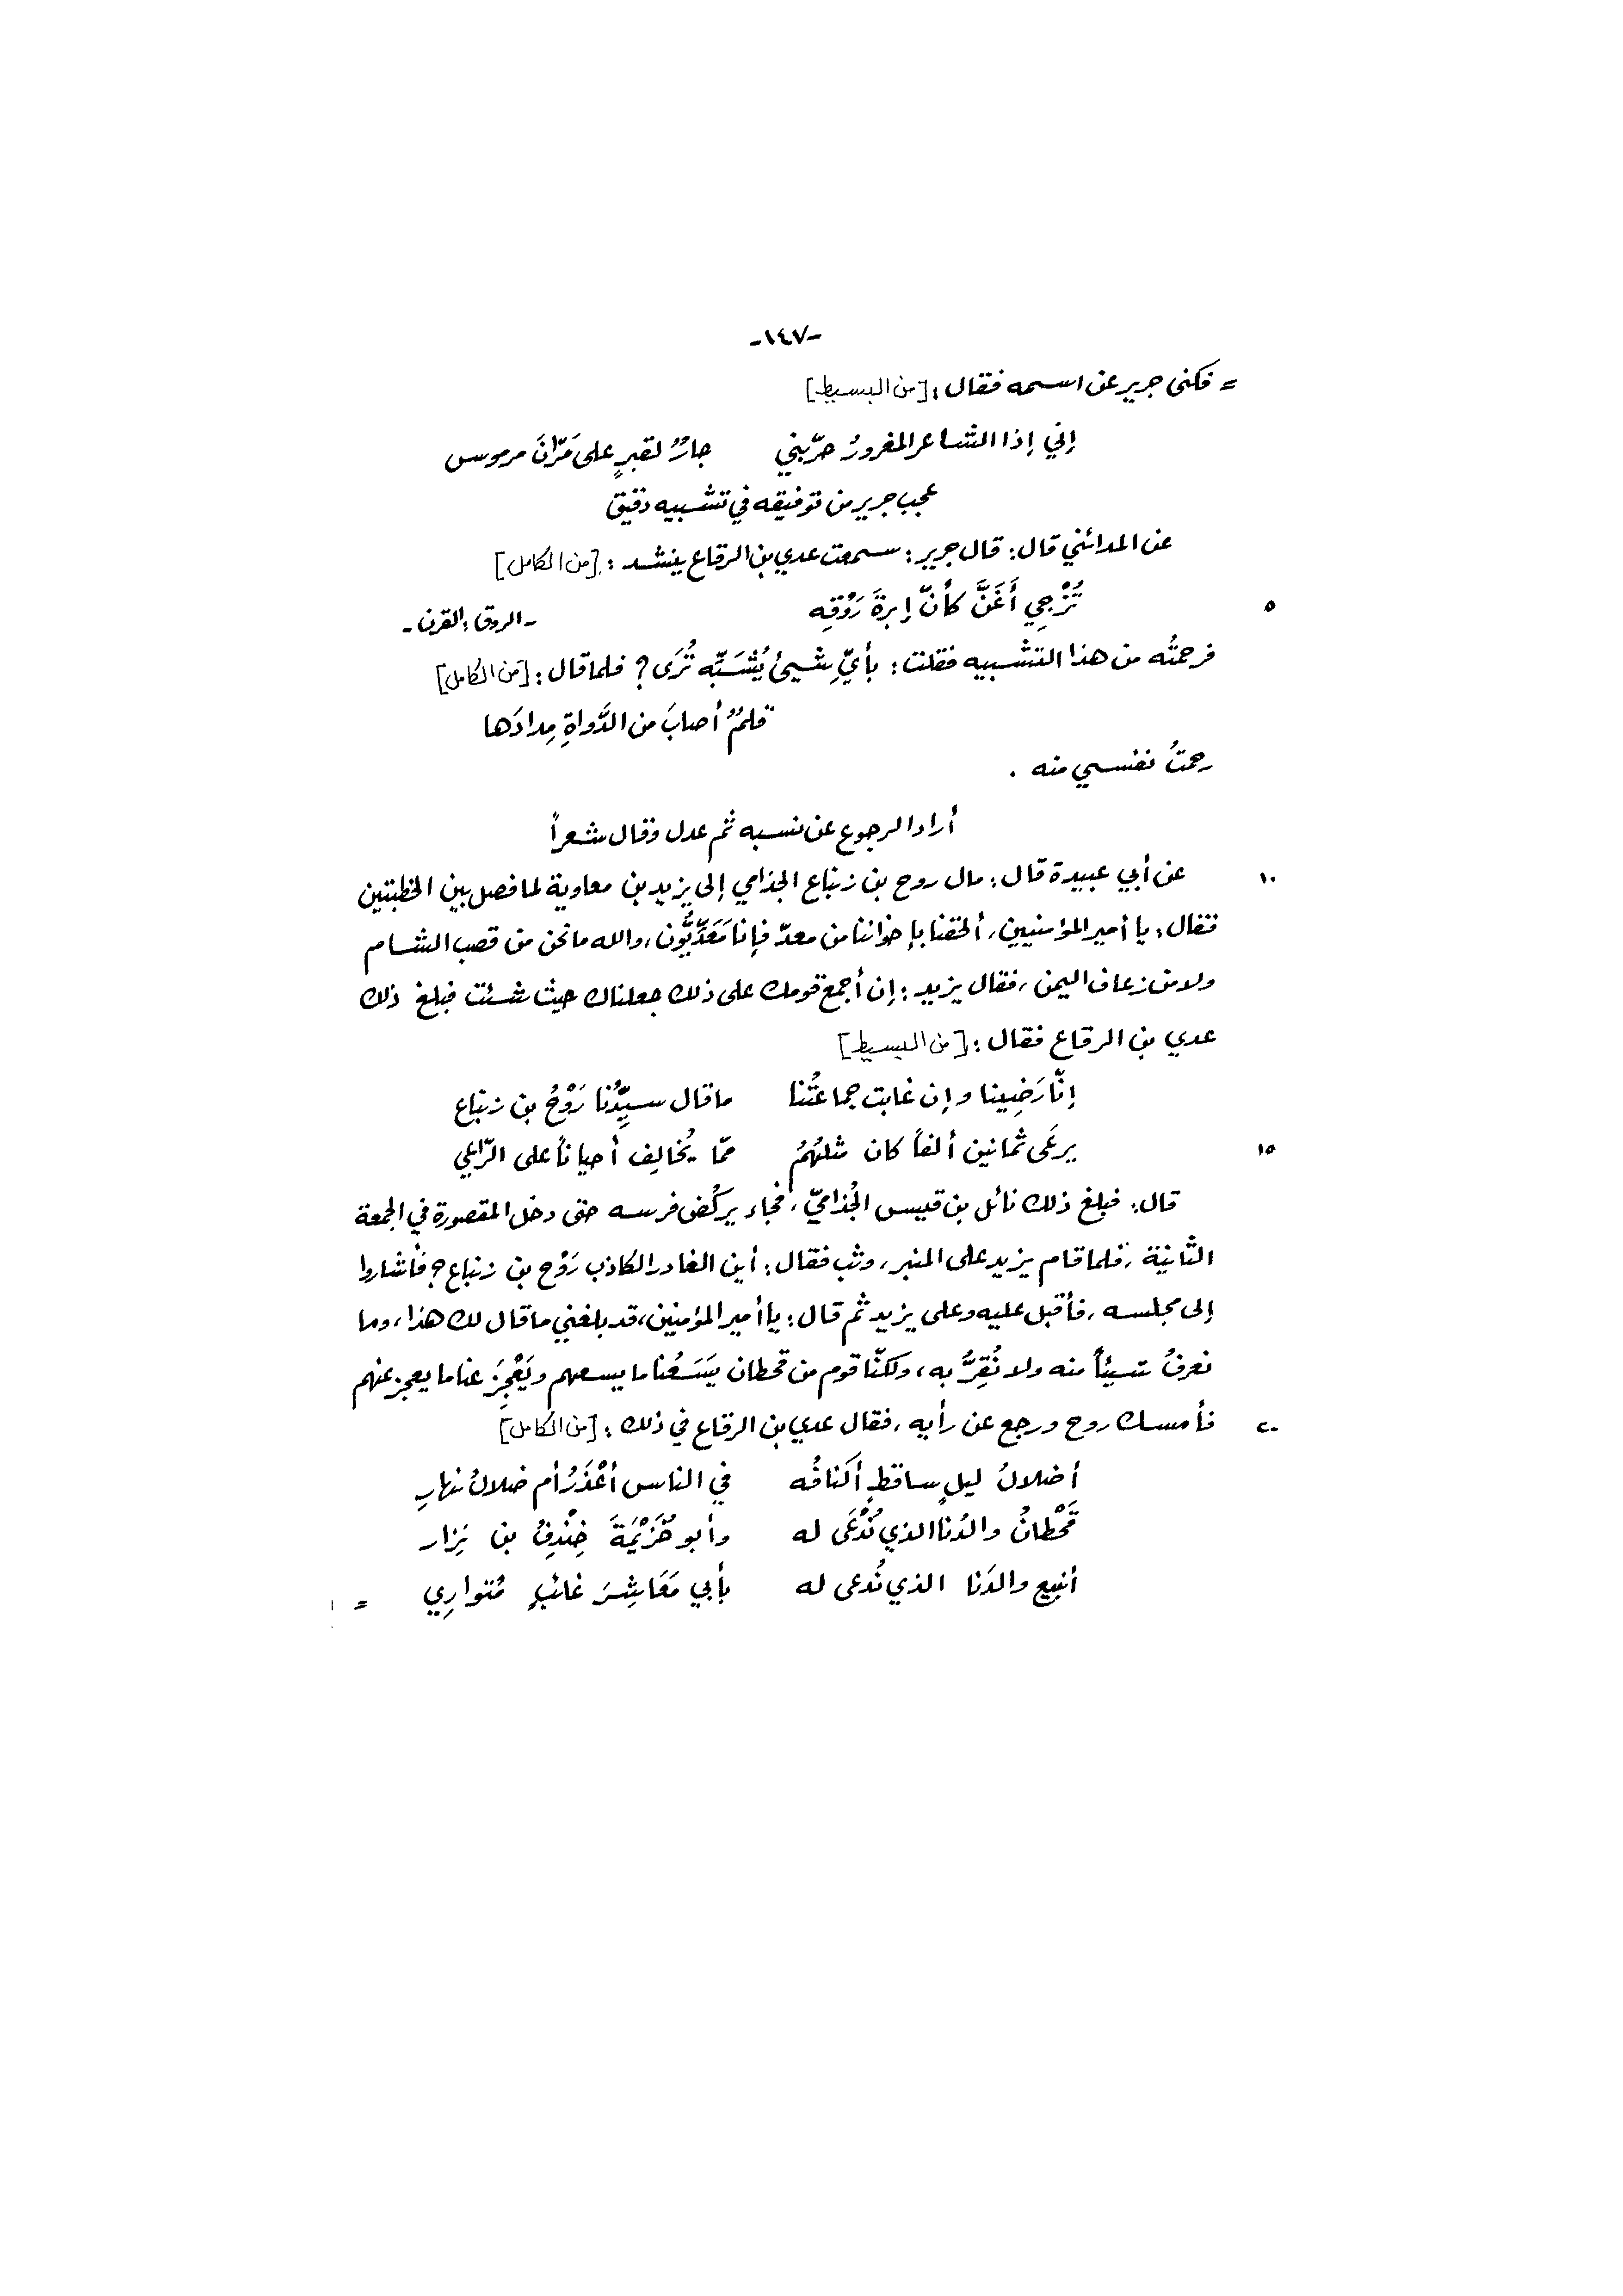 -١٤٧-
= فكنى جرير عن اسمه فقال: [من البسيط]
إني إذا الشاعر المغرورُ حرّبني جارٌ لقبرٍ على مَرّانَ مرموس
عجب جرير من توفيقه في تشبيه دقيق
عن المدائني قال: قال جرير: سمعت عدي بن الرقاع ينشد: [من الكامل]
٥ تُزْجِي أَغَنَّ كأنّ إبرةَ رَوْقِه -الروق: القرن-
فرحمتُه من هذا التشبيه فقلت: بأيّ شيئٍ يُشَبّه تُرَى؟ فلما قال: [من الكامل]
قلمٌ أصابَ من الدَّواةِ مِدادَها
رحمتُ نفسي منه .
أراد الرجوع عن نسبه ثم عدل وقال شعراً
١٠ عن أبي عبيدة قال: مال روح بن زنباع الجذامي إلى يزيد بن معاوية لما فصل بين الخطبتين
فقال: يا أمير المؤمنيين، ألحقنا بإخواننا من معدّ فإنا مَعَدِّيُّون، والله ما نحن من قصب الشام
ولا من زعاف اليمن، فقال يزيد: إن أجمع قومك على ذلك جعلناك حيث شئت فبلغ ذلك
عدي بن الرقاع فقال: [من البسيط]
إنّا رَضِينا وإن غابت جماعتُنا ما قال سيِّدُنا رَوْحُ بن زنباع
١٥ يرعَى ثمانين ألفاً كان مثلهُمُ ممّا يُخالِف أحياناً على الرّاعي
قال: فبلغ ذلك نائل بن قيس الجُذاميّ، فجاء يركُض فرسه حتى دخل المقصورة في الجمعة
الثّانية، فلما قام يزيد على المنبر، وثب فقال: أين الغادر الكاذب رَوْح بن زنباع؟ فأشاروا
إلى مجلسه، فأقبل عليه وعلى يزيد ثم قال: يا أمير المؤمنين، قد بلغني ما قال لك هذا، وما
نعرفُ شيئاً منه ولا نُقِرُّ به، ولكنّا قوم من قحطان يَسَعُنا ما يسعهم ويَعْجِزَ عنا ما يعجز عنهم
٢٠ فأمسك روح ورجع عن رأيه، فقال عدي بن الرقاع في ذلك: [من الكامل]
أضلالُ ليلٍ ساقطٍ أكنافُه في الناس أعْذَرُ أم ضلالُ نهارِ
قَحْطانُ والدُنا الذي نُدْعَى له وأبو خُزَيْمَةَ خِنْدِفُ بن نِزار
أنبيع والدَنا الذي نُدعى له بأبي مَعَاشِرَ غائبٍ مُتوارِي =